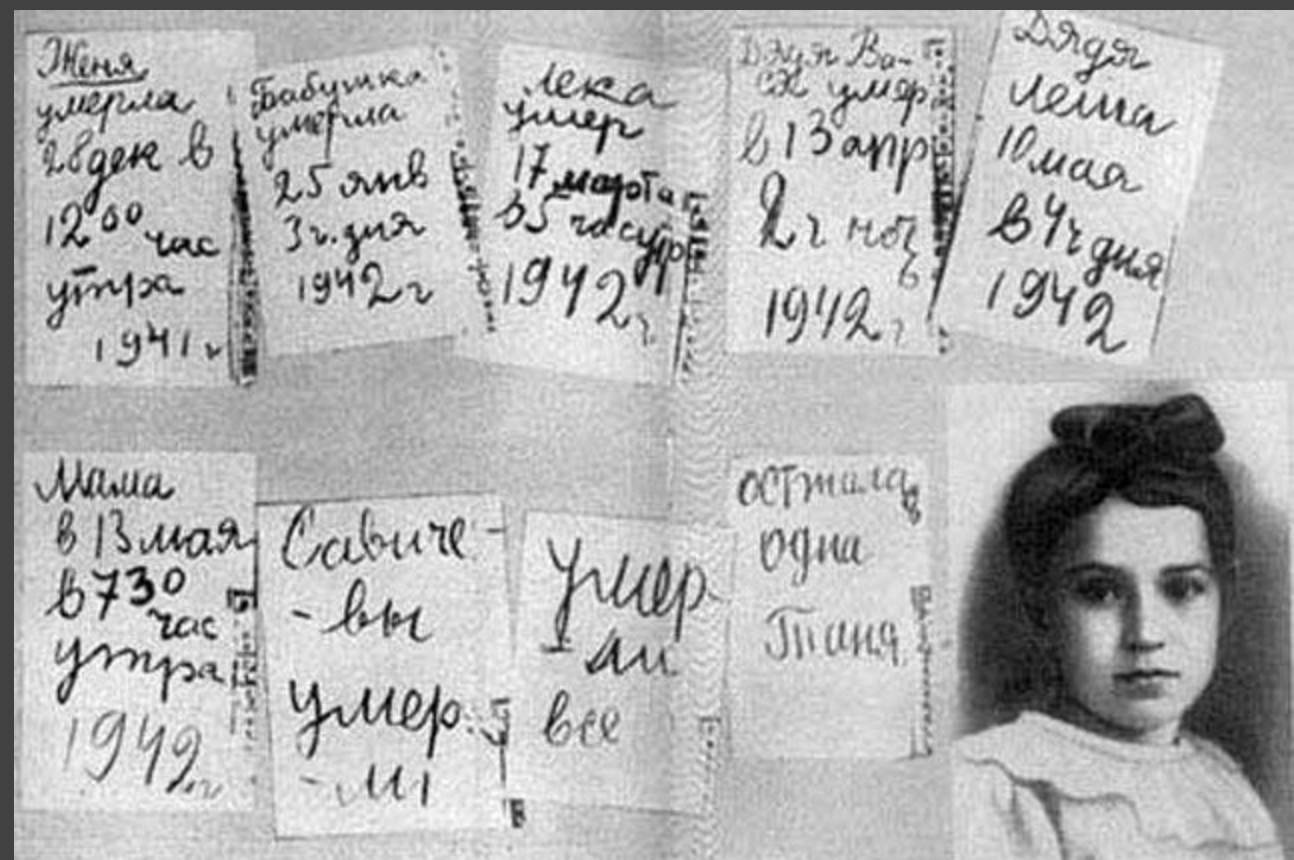 Женя
умерла
28 дек в
12⁰⁰ час
утра
1941 г
Бабушка
умерла
25 янв
3 ч. дня
1942 г
Лека
умер
17 марта
в 5 час утр
1942 г
Дядя Ва-
ся умер
в 13 апр
2 ч ноч
ь
1942 г
Дядя
Леша
10 мая
в 4 ч дня
1942
Мама
в 13 мая
в 7³⁰
час
утра
1942 г
Савиче-
-вы
умер
-ли
Умер
-ли
все
осталась
одна
Таня